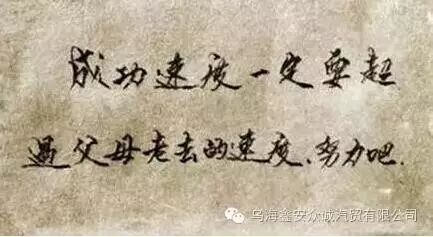 成功速度一定要超
过父母老去的速度、努力吧.
乌海鑫安众诚汽贸有限公司